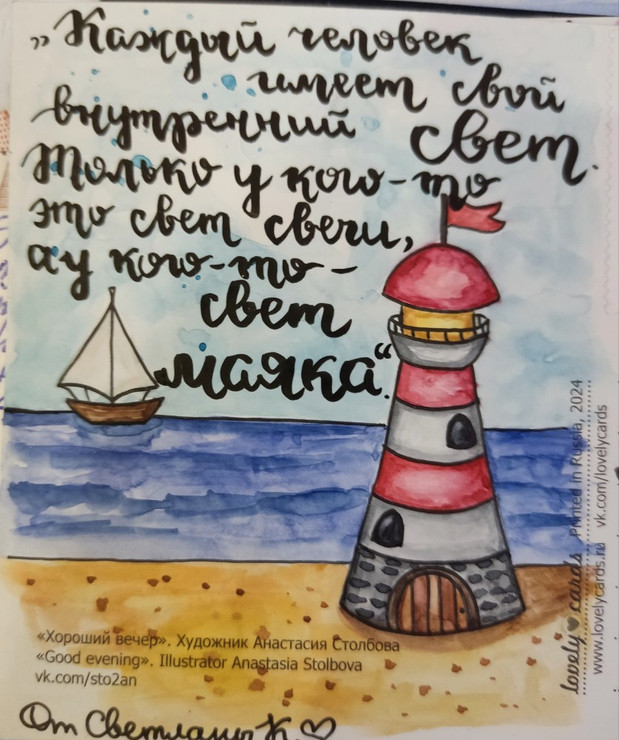 „Каждый человек
имеет свой
внутренний свет.
Только у кого-то
это свет свечи,
а у кого-то –
свет
маяка“.
«Хороший вечер». Художник Анастасия Столбова
«Good evening». Illustrator Anastasia Stolbova
vk.com/sto2an
От Светланы К. ♡
lovely cards Printed in Russia, 2024
www.lovelycards.ru vk.com/lovelycards